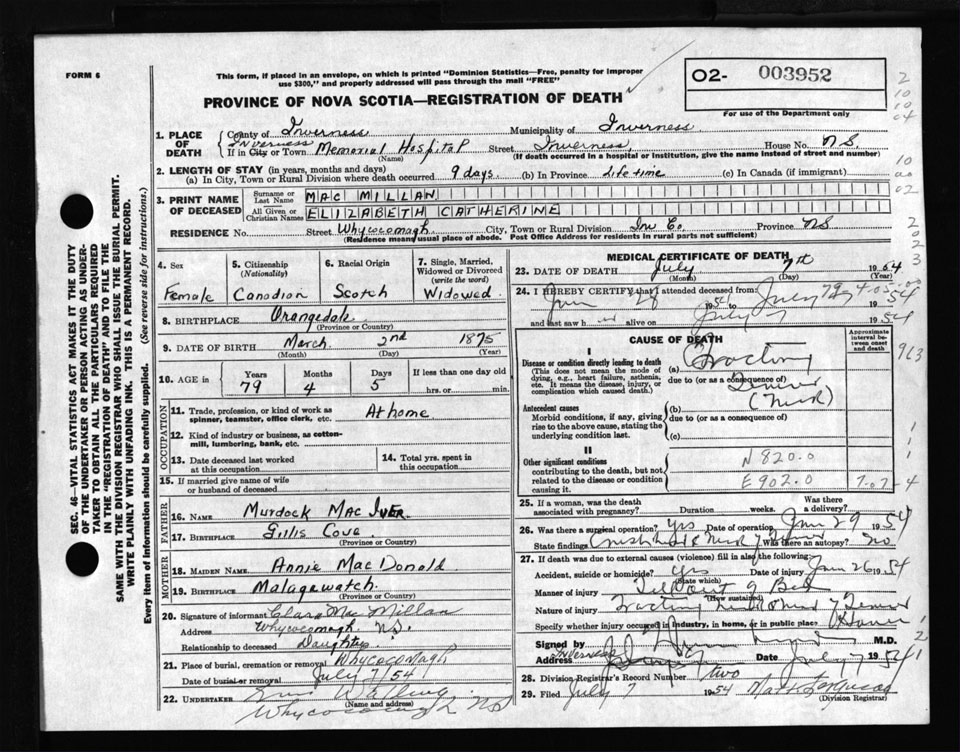 FORM 6
This form, if placed in an envelope, on which is printed "Dominion Statistics—Free, penalty for improper
use $300," and properly addressed will pass through the mail "FREE"
PROVINCE OF NOVA SCOTIA—REGISTRATION OF DEATH
O2- 003952
For use of the Department only
1. PLACE OF DEATH
County of Inverness Municipality of Inverness
Inverness
If in City or Town Memorial Hospital Street Inverness House No. N.S.
(Name) (If death occurred in a hospital or institution, give the name instead of street and number)
2. LENGTH OF STAY (in years, months and days)
(a) In City, Town or Rural Division where death occurred 9 days. (b) In Province Life time (c) In Canada (if immigrant)
3. PRINT NAME OF DECEASED
Surname or Last Name MAC MILLAN
All Given or Christian Names ELIZABETH CATHERINE
RESIDENCE No. Street Whycocomagh City, Town or Rural Division Inv Co. Province NS
(Residence means usual place of abode. Post Office Address for residents in rural parts not sufficient)
4. Sex Female
5. Citizenship (Nationality) Canadian
6. Racial Origin Scotch
7. Single, Married, Widowed or Divorced (write the word) Widowed
8. BIRTHPLACE Orangedale
(Province or Country)
9. DATE OF BIRTH March 2nd 1875
(Month) (Day) (Year)
10. AGE in Years 79 Months 4 Days 5 If less than one day old hrs. or min.
OCCUPATION
11. Trade, profession, or kind of work as spinner, teamster, office clerk, etc. At home
12. Kind of industry or business, as cotton-mill, lumbering, bank, etc.
13. Date deceased last worked at this occupation
14. Total yrs. spent in this occupation
15. If married give name of wife or husband of deceased
FATHER
16. NAME Murdock Mac Iver
17. BIRTHPLACE Gillis Cove
(Province or Country)
MOTHER
18. MAIDEN NAME Annie Mac Donald
19. BIRTHPLACE Malagawatch
(Province or Country)
20. Signature of informant Clara Mac Millan
Address Whycocomagh NS.
Relationship to deceased Daughter
21. Place of burial, cremation or removal Whycocomagh
Date of burial or removal July 7/54
22. UNDERTAKER
(Name and address)
Whycocomagh NS
MEDICAL CERTIFICATE OF DEATH
23. DATE OF DEATH July 7th 1954
(Month) (Day)
24. I HEREBY CERTIFY that I attended deceased from:
Jun 28 1954 to July 7 1954
and last saw h alive on July 7 1954
CAUSE OF DEATH
Approximate interval between onset and death
I
Disease or condition directly leading to death
(This does not mean the mode of dying, e.g., heart failure, asthenia, etc. It means the disease, injury, or complication which caused death.)
(a)
due to (or as a consequence of)
Antecedent causes
Morbid conditions, if any, giving rise to the above cause, stating the underlying condition last.
(b)
due to (or as a consequence of)
(c)
II
Other significant conditions
contributing to the death, but not related to the disease or condition causing it.
N 820.0
E 902.0
7.07-4
25. If a woman, was the death associated with pregnancy? Duration weeks. Was there a delivery?
26. Was there a surgical operation? Yes Date of operation Jun 29 1954
State findings Was there an autopsy? No
27. If death was due to external causes (violence) fill in also the following:
Accident, suicide or homicide? yes Date of injury Jun 26 1954
(State which)
Manner of injury Fell out of Bed
(How sustained)
Nature of injury
Specify whether injury occurred in industry, in home, or in public place Home
Signed by M.D.
Address Inverness Date July 7 1954
28. Division Registrar's Record Number two
29. Filed July 7 1954
(Division Registrar)
SEC. 46—VITAL STATISTICS ACT MAKES IT THE DUTY
OF THE UNDERTAKER OR PERSON ACTING AS UNDER-
TAKER TO OBTAIN ALL THE PARTICULARS REQUIRED
IN THE "REGISTRATION OF DEATH" AND TO FILE THE
SAME WITH THE DIVISION REGISTRAR WHO SHALL ISSUE THE BURIAL PERMIT.
WRITE PLAINLY WITH UNFADING INK. THIS IS A PERMANENT RECORD.
Every item of Information should be carefully supplied. (See reverse side for instructions.)